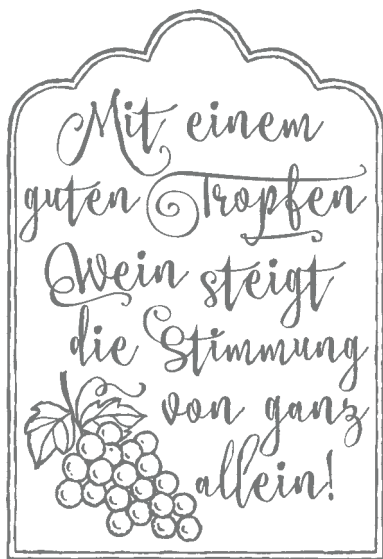 Mit einem
guten Tropfen
Wein steigt
die Stimmung
von ganz
allein!